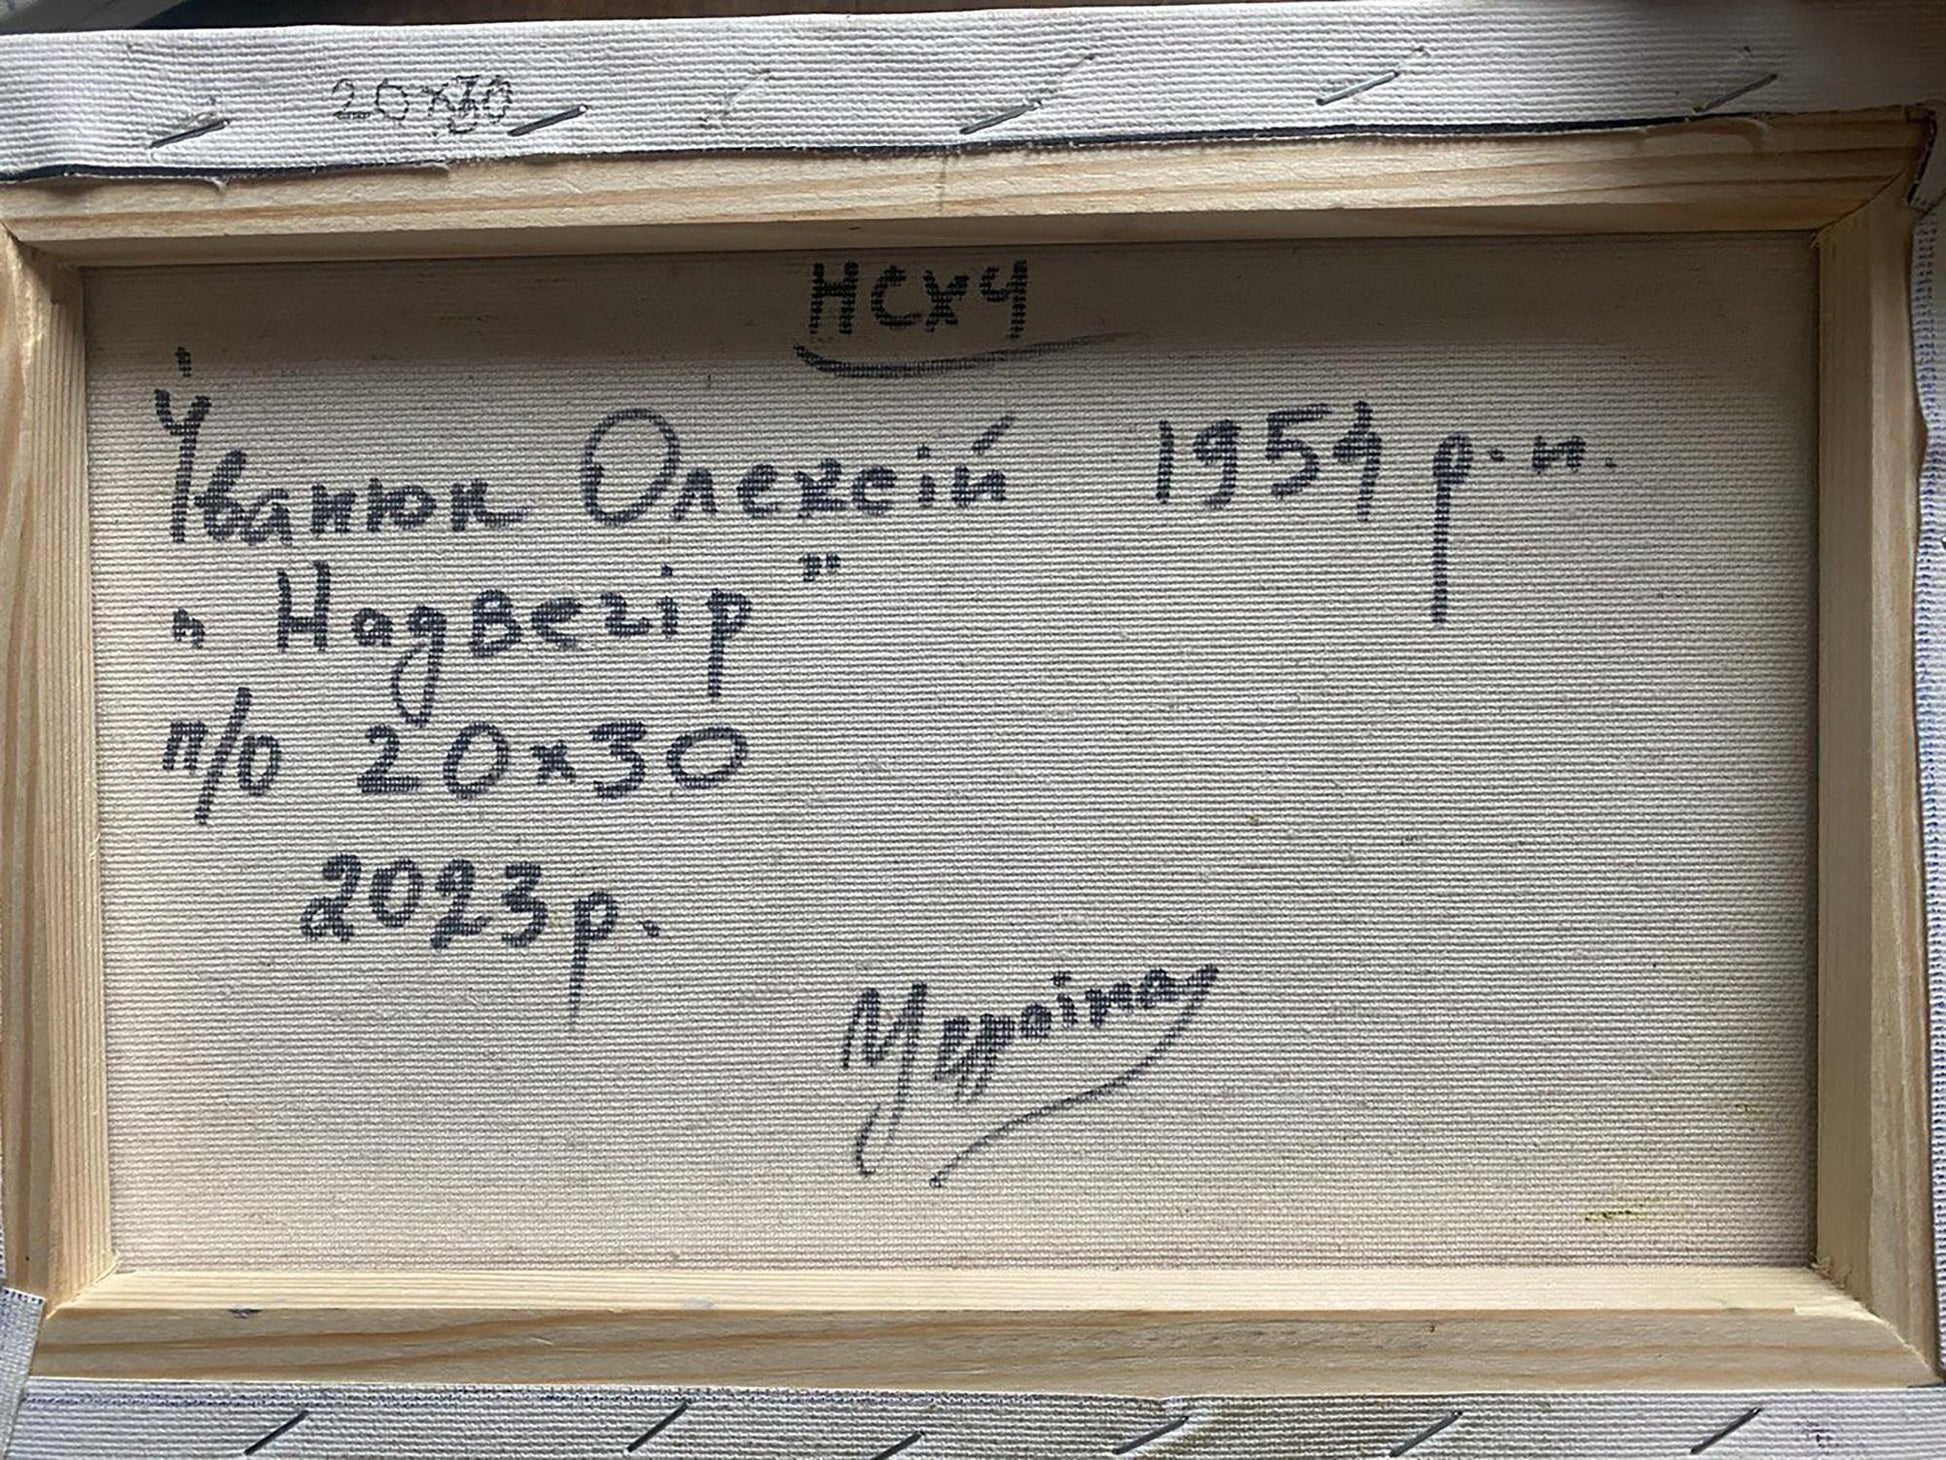 20x30
НСХУ
Іванюк Олексій 1954 р.н.
„Надвегір"
п/о 20x30
2023р.
Україна